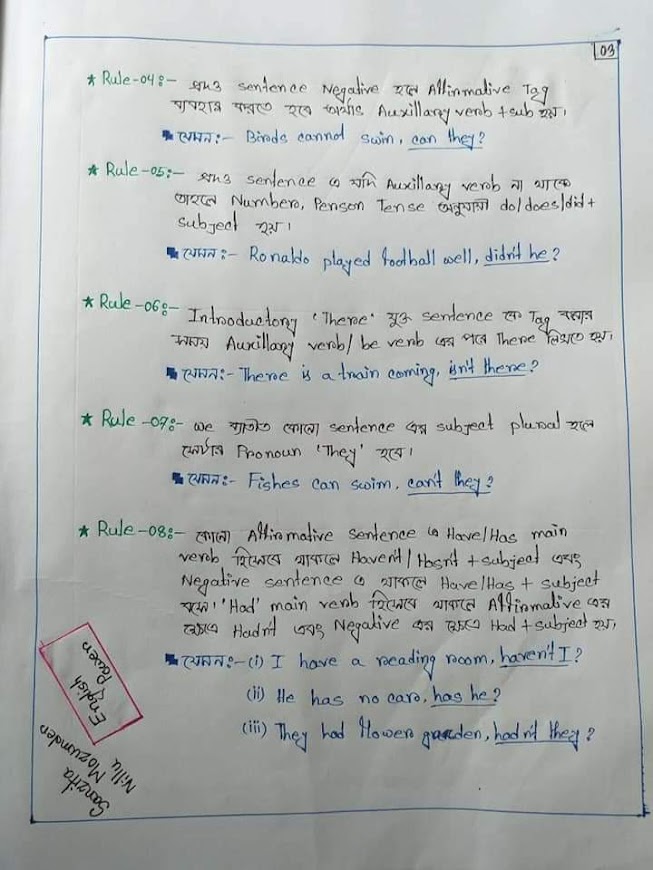 03
★ Rule-04:- প্রদত্ত sentence Negative হলে Affirmative Tag
ব্যবহার করতে হবে অর্থাৎ Auxillary verb + sub হয়।
যেমন:- Birds cannot swim, can they?
★ Rule-05:- প্রদত্ত sentence এ যদি Auxillary verb না থাকে
তাহলে Number, Person Tense অনুযায়ী do/does/did +
subject হয়।
যেমন:- Ronaldo played football well, didn't he?
★ Rule-06:- Introductory 'There' যুক্ত sentence কে Tag করার
সময় Auxillary verb/ be verb এর পরে There লিখতে হয়।
যেমন:- There is a train coming, isn't there?
★ Rule-07:- we ব্যতীত কোনো sentence এর subject plural হলে
সেটার Pronoun 'They' হবে।
যেমন:- Fishes can swim, can't they?
★ Rule-08:- কোনো Affirmative sentence এ Have/Has main
verb হিসেবে থাকলে Haven't/Hasn't + subject এবং
Negative sentence এ থাকলে Have/Has + subject
বসে। 'Had' main verb হিসেবে থাকলে Affirmative এর
ক্ষেত্রে Hadn't এবং Negative এর ক্ষেত্রে Had + subject হয়।
যেমন:- (i) I have a reading room, haven't I?
(ii) He has no car, has he?
(iii) They had flower garden, hadn't they?
English
Power
Sanzita
Nillu Mozumder